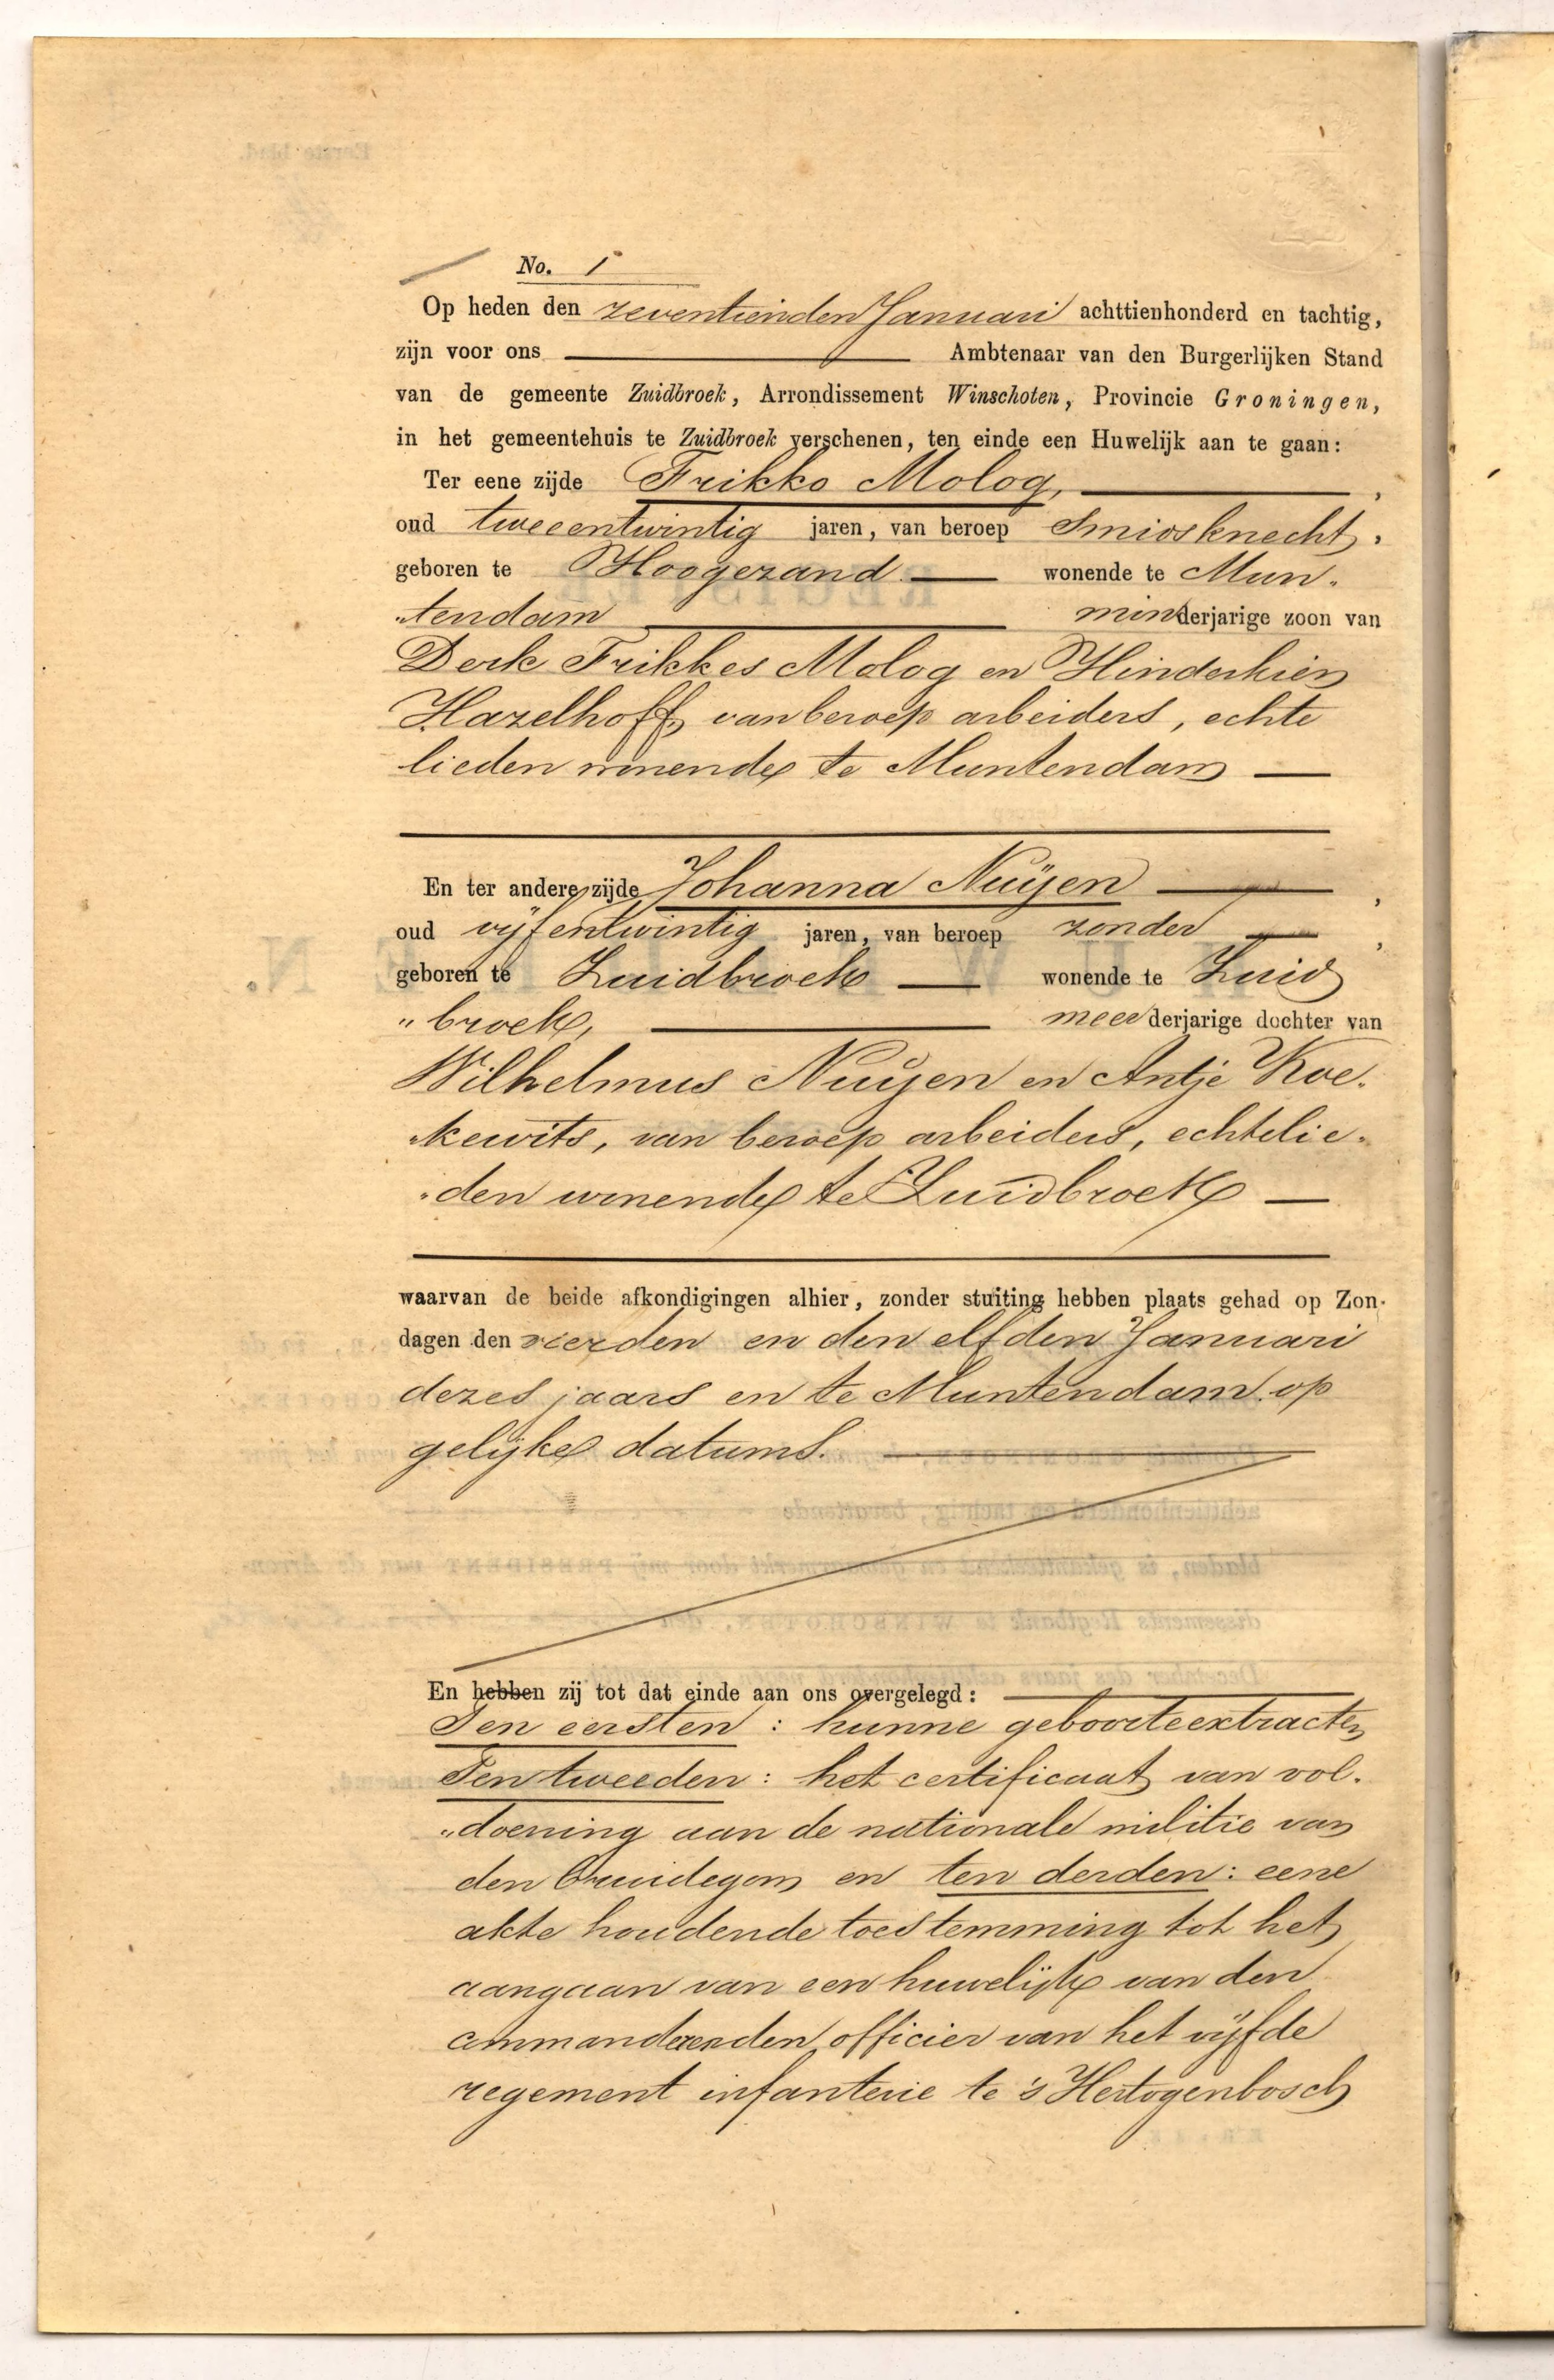 No. 1
Op heden den zeventienden Januari achttienhonderd en tachtig,
zijn voor ons Ambtenaar van den Burgerlijken Stand
van de gemeente Zuidbroek, Arrondissement Winschoten, Provincie Groningen,
in het gemeentehuis te Zuidbroek verschenen, ten einde een Huwelijk aan te gaan:
Ter eene zijde Frikko Molog,
oud tweeentwintig jaren, van beroep Smidsknecht,
geboren te Hoogezand wonende te Mun„
„tendam minderjarige zoon van
Derk Frikkes Molog en Hinderkien
Hazelhoff, van beroep arbeiders, echte
lieden wonende te Muntendam
En ter andere zijde Johanna Nuijen,
oud vijfentwintig jaren, van beroep zonder,
geboren te Zuidbroek wonende te Zuid
„broek, meerderjarige dochter van
Wilhelmus Nuijen en Antje Koe„
„kewits, van beroep arbeiders, echtelie„
„den wonende te Zuidbroek
waarvan de beide afkondigingen alhier, zonder stuiting hebben plaats gehad op Zon-
dagen den vierden en den elfden Januari
dezes jaars en te Muntendam op
gelijke datums.
En hebben zij tot dat einde aan ons overgelegd:
Ten eersten: hunne geboorteextracten
Ten tweeden: het certificaat van vol„
„doening aan de nationale militie van
den Bruidegom en ten derden: eene
akte houdende toestemming tot het
aangaan van een huwelijk van den
commandeerenden officier van het vijfde
regement infanterie te 's Hertogenbosch